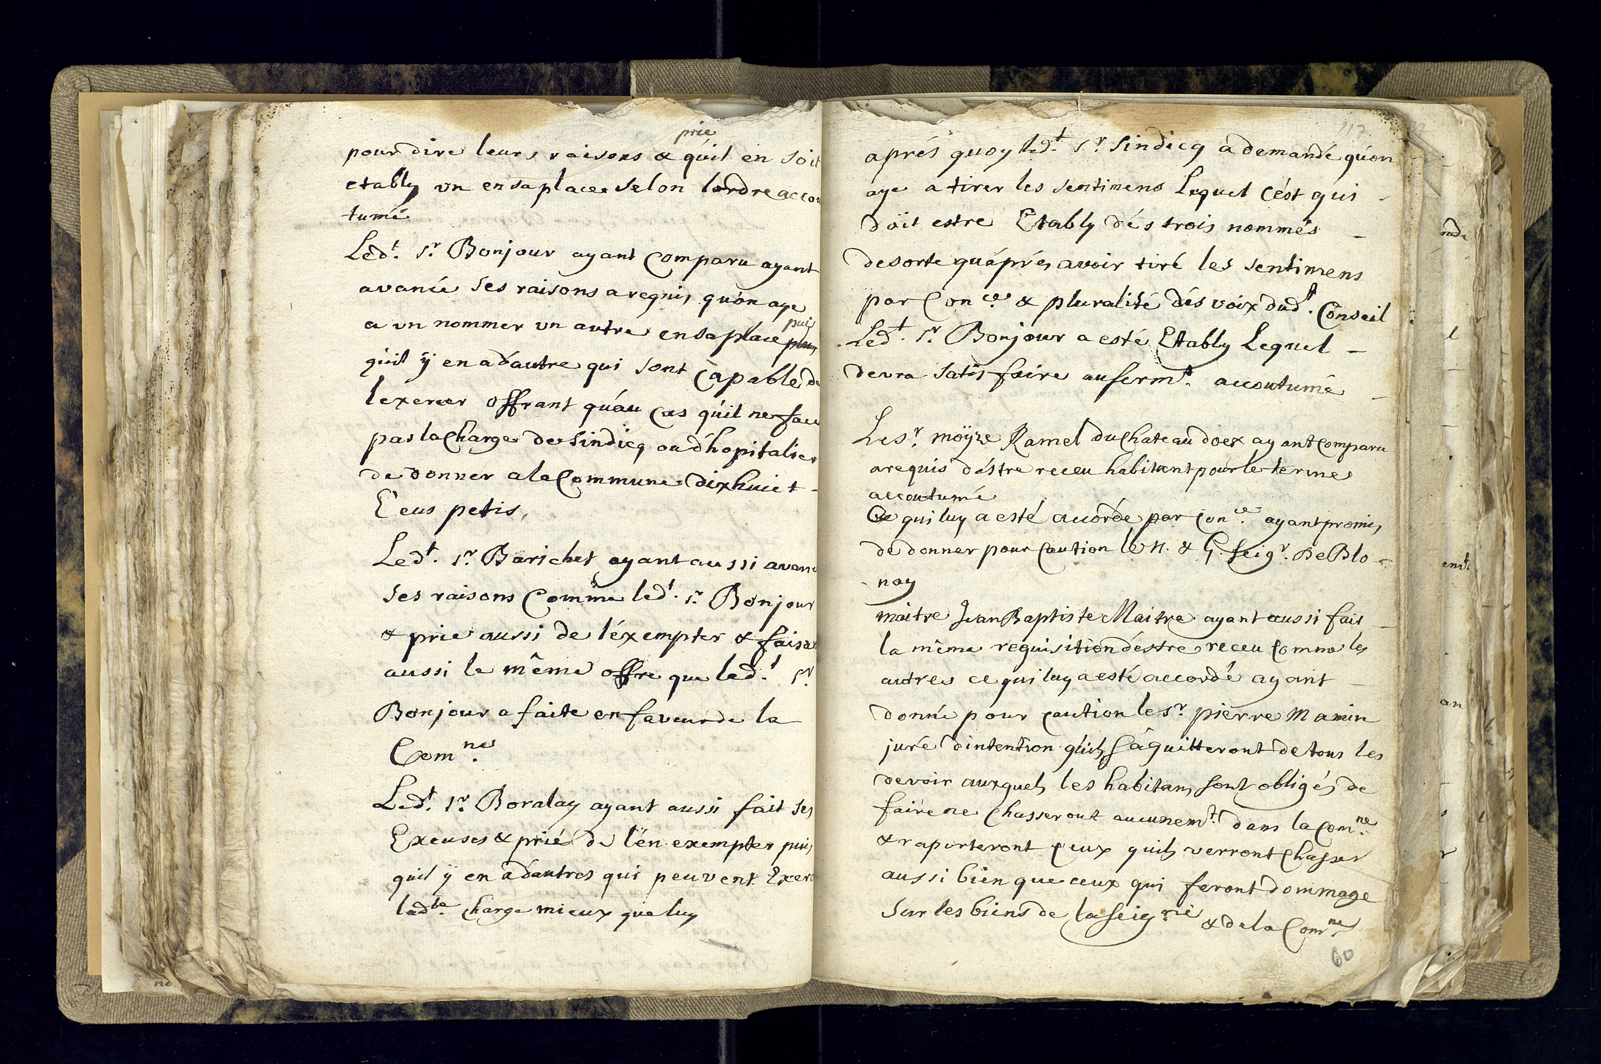 prié
pour dire leurs raisons & qu'il en soit
etably un en sa place selon lordre accou
tumé
Led.t S.r Bonjour ayant comparu ayant
avancé ses raisons a requis qu'on aye
a un nommer un autre en sa place
puis
quil ÿ en a d'autre qui sont capable de
lexercer offrant qu'au cas qu'il ne face
pas la charge de Sindicq ou d'hopitalier
de donner a la Commune dixhuict
Ecus petis,
Led.t S.r Barichet ayant aussi avancé
ses raisons Comme led.t S.r Bonjour
& prie aussi de l'éxempter & faisa
aussi le même offre que led.t S.r
Bonjour a faite en faveur de la
Com.ne
Led.t S.r Boralay ayant aussi fait ses
Excuses & prié de l'en exempter puis
quil ÿ en a d'autres qui peuvent Exer
lad.te charge mieux que luy
117
aprés quoy led.t S.r Sindicq a demandé qu'on
aye a tirer les sentimens Lequel c'est qui
doit estre Etably dés trois nommés
desorte qu'áprés avoir tiré les sentimens
par Con.ce & pluralité dés voix dud.t Conseil
Led.t S.r Bonjour a esté Etably Lequel
devra satisfaire au serm.t accoutumé
Le S.r moÿze Ramel du Chateau doex ayant comparu
a requis d'éstre receu habitant pour le terme
accoutumé
Ce qui luy a esté accordé par Con.ce ayant promis
de donner pour Caution le N. & G. Seig.r De Blo
nay
maitre Jean Baptiste Maitre ayant aussi fait
la même requisition déstre receu Comme les
autres ce qui luy a esté accordé ayant
donné pour caution le S.r pierre Mamin
juré d'intention quils s'áquitteront de tous les
devoir auxquels les habitans sont obligés de
faire ne Chasseront aucunem.t dans la Com.ne
& raporteront ceux quils verront Chasser
aussi bien que ceux qui feront dommage
sur les biens de la Seig.rie & de la Com.ne
60